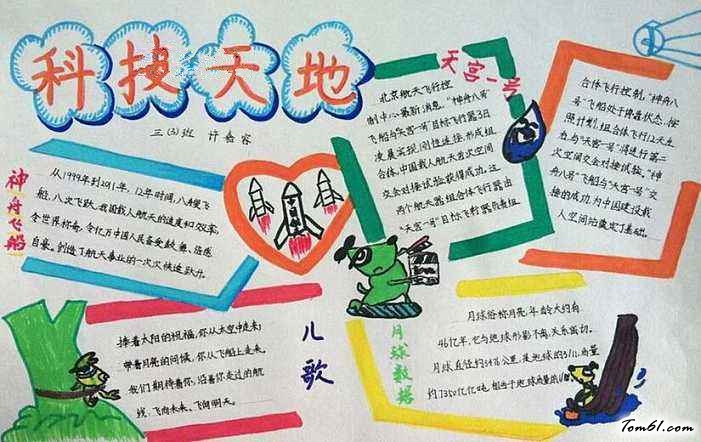 科技天地
三(3)班 许嘉容
神舟飞船
从1999年到2011年,12年时间,八艘飞
船,八次飞跃,我国载人航天的速度和效率,
令世界称奇,令亿万中国人民备受鼓舞、倍感
自豪。创造了航天事业的一次次快速跃升。
中国航天
天宫一号
北京航天飞行控
制中心最新消息,"神舟八号"
飞船与"天宫一号"目标飞行器3日
凌晨实现刚性连接,形成组
合体,中国载人航天首次空间
交会对接试验获得成功。这
两个航天器组合体飞行器由
"天宫一号"目标飞行器负责组
合体飞行控制,"神舟八
号"飞船处于停靠状态。按
照计划,组合体飞行12天左
右,与"天宫一号"将进行第二
次空间交会对接试验。"神
舟八号"飞船与"天宫一号"交
接的成功,为中国建设载
人空间站奠定了基础。
儿歌
捧着太阳的祝福,你从太空中走来;
带着月亮的问候,你从飞船上走来。
我们期待着你,沿着你走过的航
线,飞向未来、飞向明天。
月球数据
月球俗称月亮,年龄大约有
46亿年,它与地球形影不离,关系密切。
月球直径约3476公里,是地球的3/11,质量
约7350亿亿吨,相当于地球质量的1/
Tom61.com